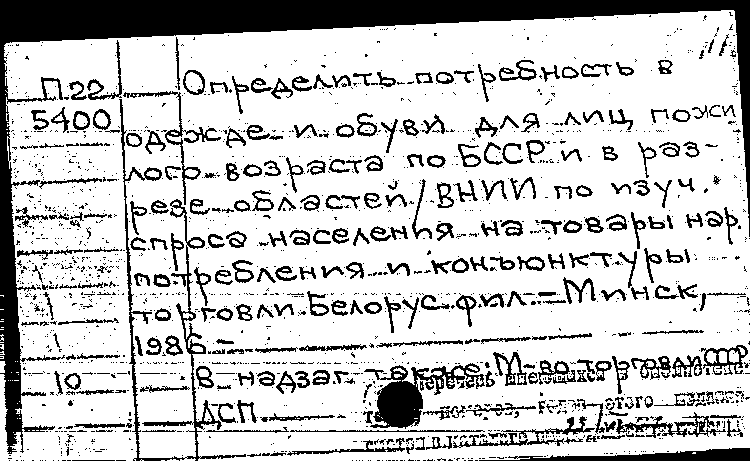 П22 Определить потребность в
5400 одежде и обуви для лиц пожи
лого возраста по БССР и в раз-
резе областей/ВНИИ по изуч.
спроса населения на товары нар.
потребления и конъюнктуры
торговли. Белорус. фил. – Минск,
1986 –
10 В надзаг. также: М-во торговли СССР
ДСП
Перечень имеющихся в библиотеке
номеров, годов этого издания